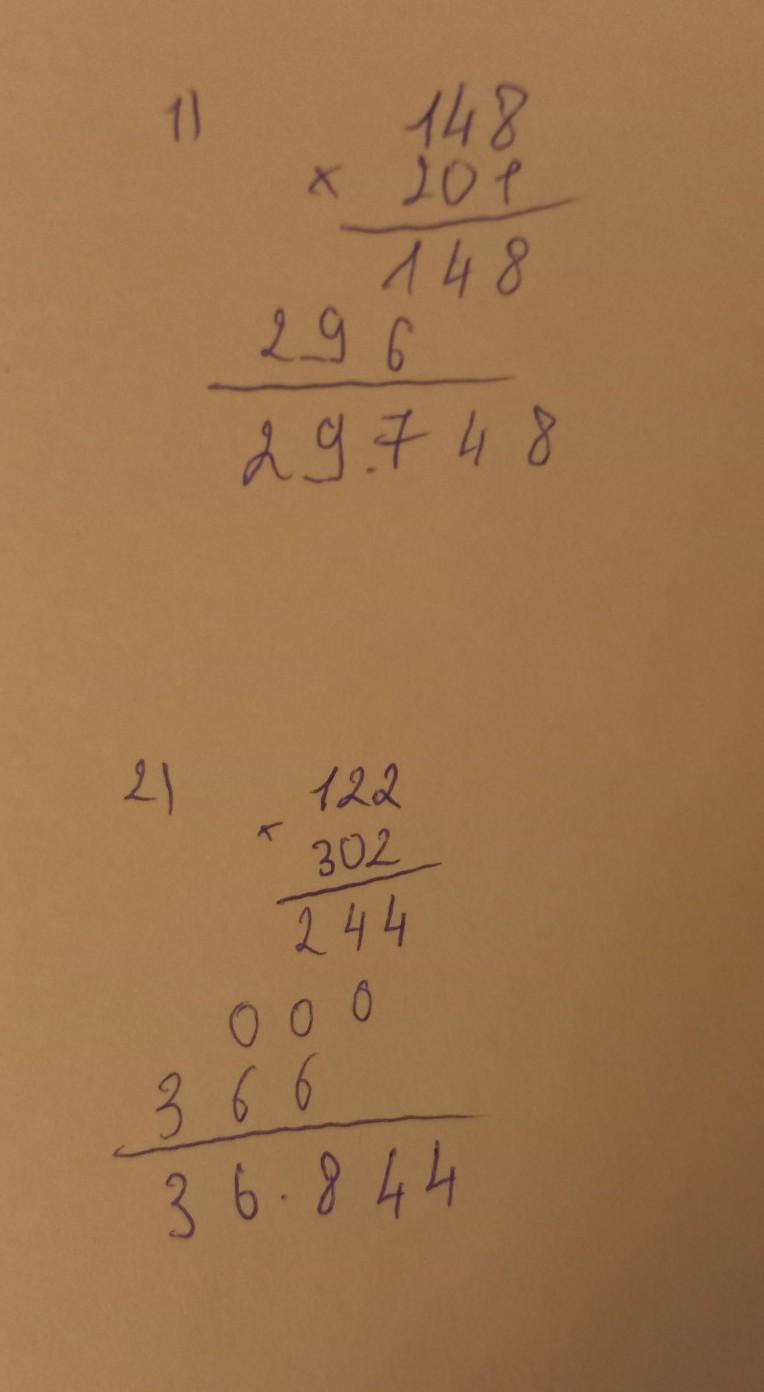 1) 148
× 201
148
296
29.748
2) 122
× 302
244
000
366
36.844